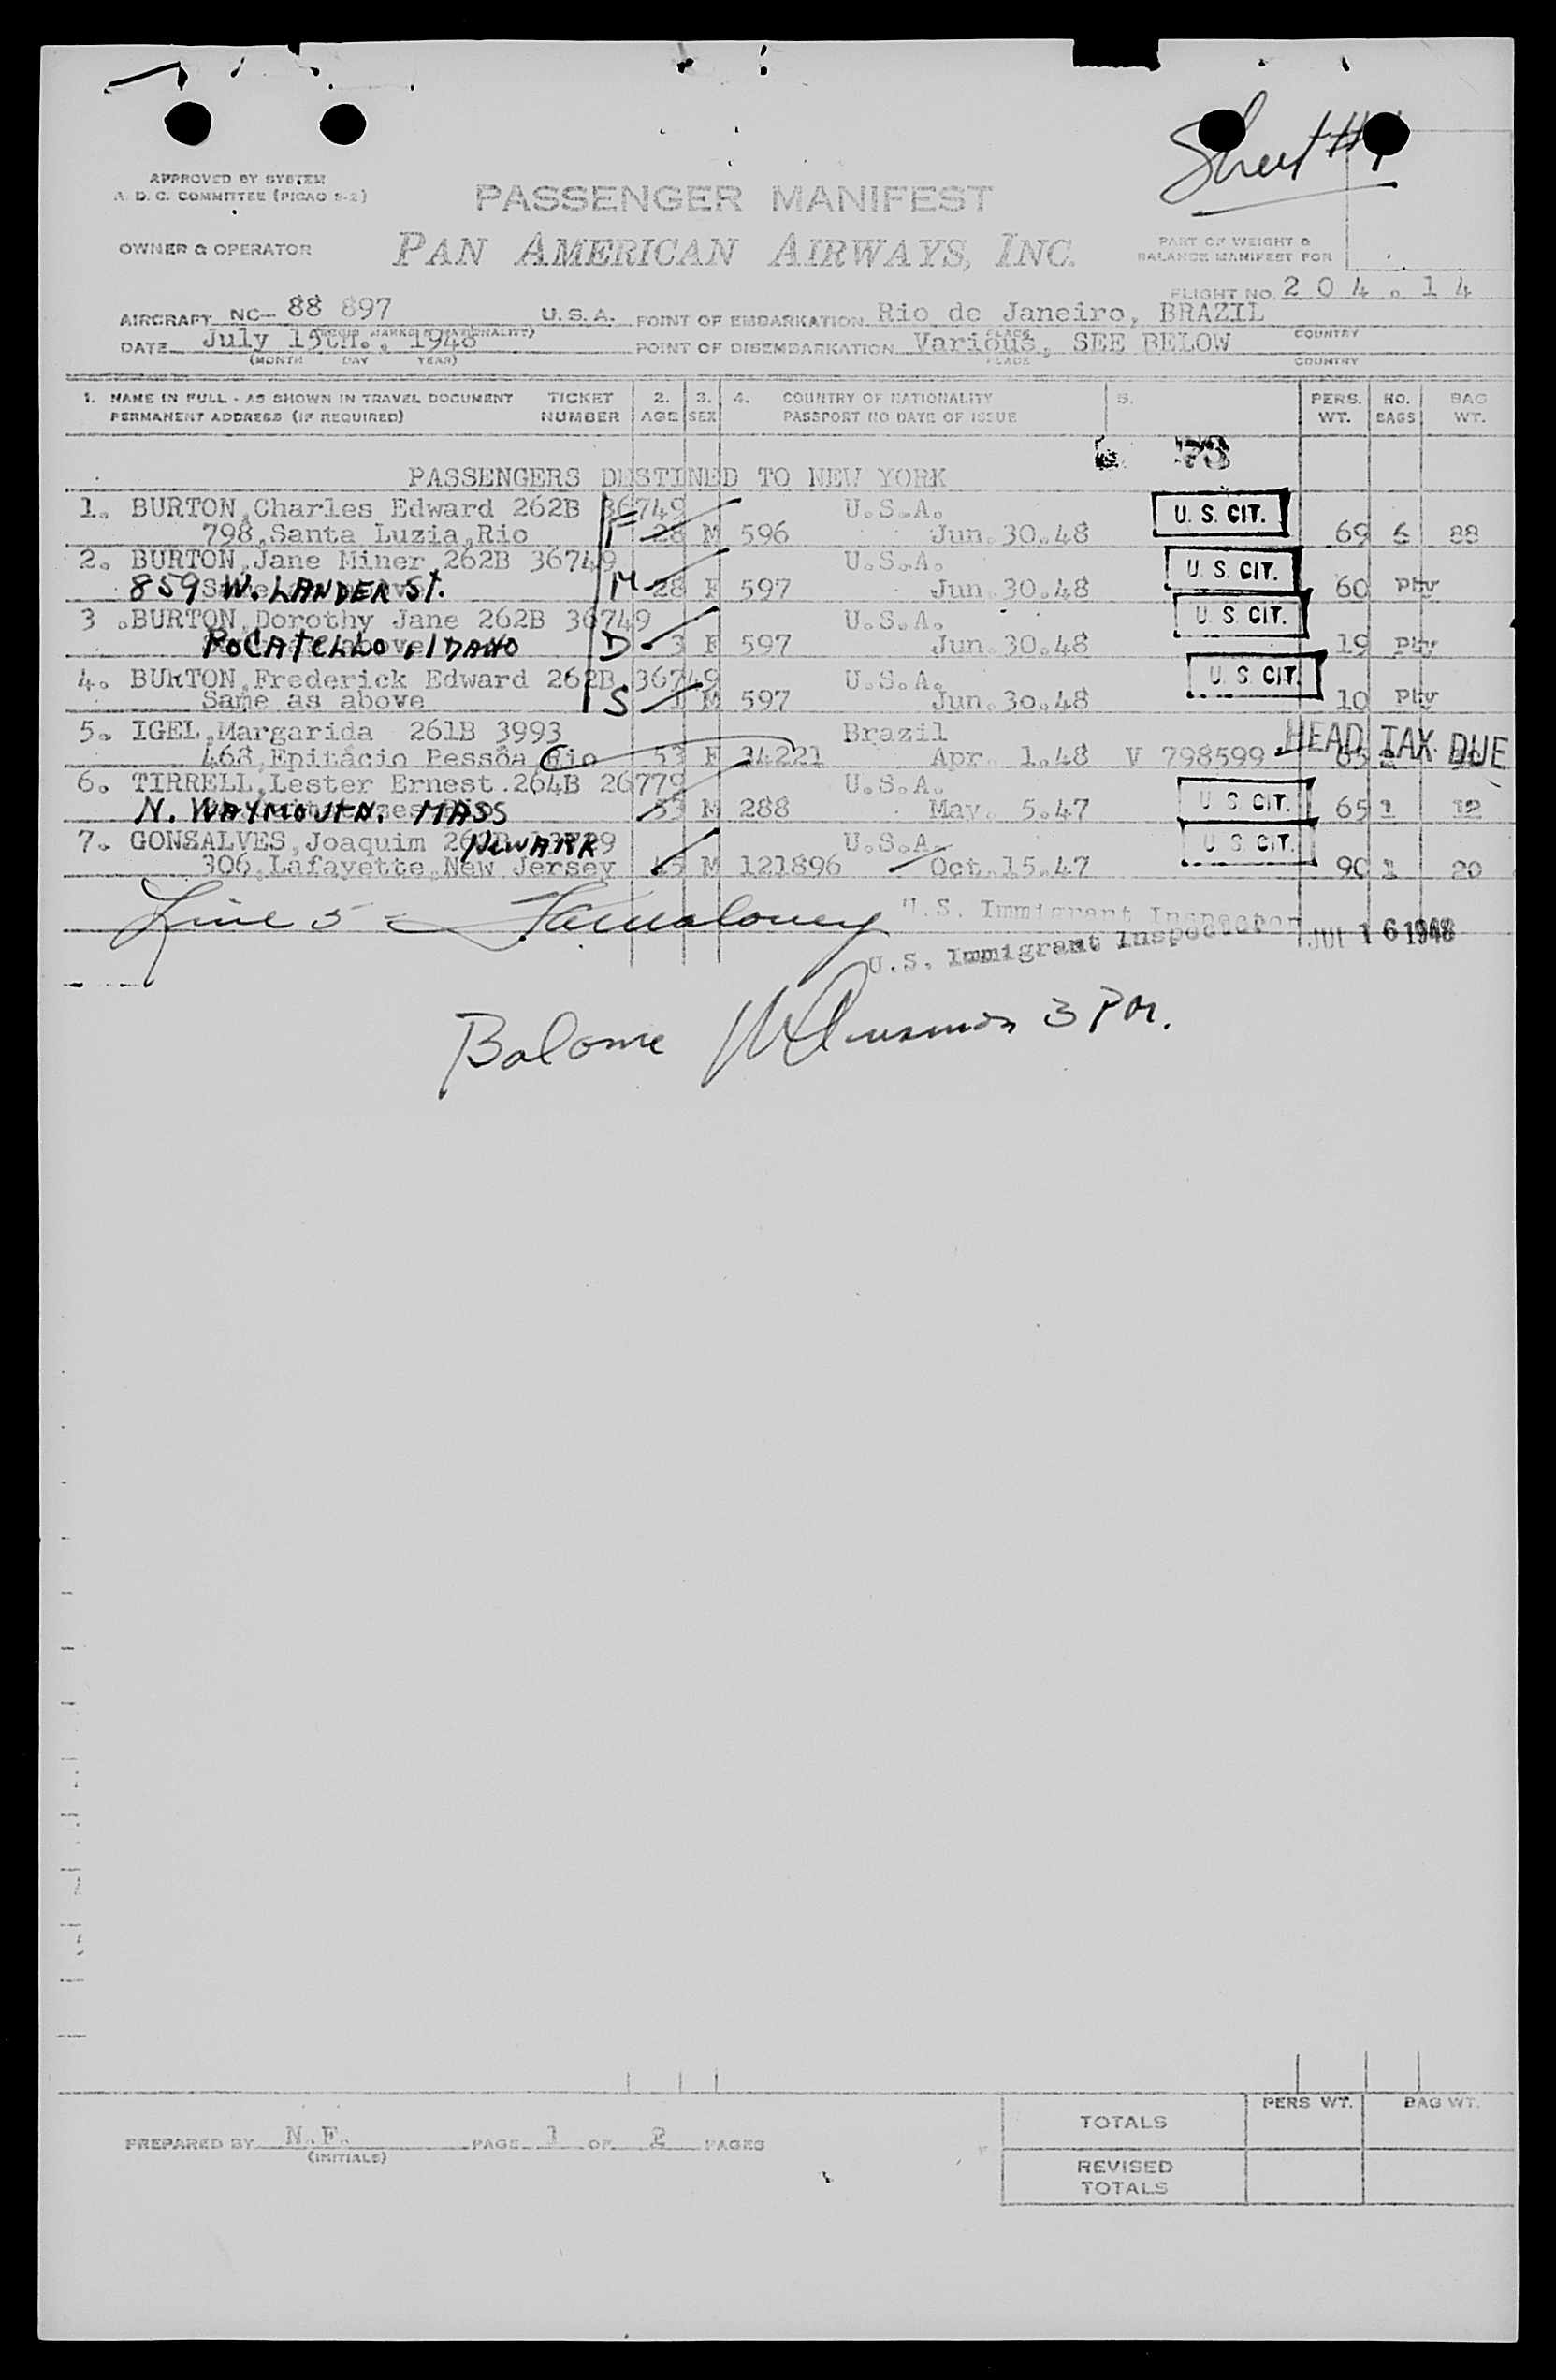 Sheet #1
APPROVED BY SYSTEM
A. D. C. COMMITTEE (PICAO 9-2)
PASSENGER MANIFEST
OWNER & OPERATOR
PAN AMERICAN AIRWAYS, INC.
PART OF WEIGHT &
BALANCE MANIFEST FOR
FLIGHT NO. 204.14
AIRCRAFT NC- 88 897 U.S.A. POINT OF EMBARKATION Rio de Janeiro, BRAZIL
PLACE COUNTRY
DATE July 15th., 1948 POINT OF DISEMBARKATION Various, SEE BELOW
(MONTH DAY YEAR) PLACE COUNTRY
1. NAME IN FULL - AS SHOWN IN TRAVEL DOCUMENT TICKET 2. 3. 4. COUNTRY OF NATIONALITY 5. PERS. NO. BAG
PERMANENT ADDRESS (IF REQUIRED) NUMBER AGE SEX PASSPORT NO DATE OF ISSUE WT. BAGS WT.
73
PASSENGERS DESTINED TO NEW YORK
1. BURTON,Charles Edward 262B 36749 U.S.A. U. S. CIT.
798,Santa Luzia,Rio F 28 M 596 Jun.30.48 69 6 88
2. BURTON,Jane Miner 262B 36749 U.S.A. U. S. CIT.
859 W. LANDER St. M 28 F 597 Jun.30.48 60 Phv
3 .BURTON,Dorothy Jane 262B 36749 U.S.A. U. S. CIT.
POCATELLO, IDAHO D 3 F 597 Jun.30.48 19 Phv
4. BURTON,Frederick Edward 262B 36749 U.S.A. U. S. CIT.
Same as above S 1 M 597 Jun.30.48 10 Phv
5. IGEL,Margarida 261B 3993 Brazil HEAD TAX DUE
468,Epitácio Pessôa Rio 53 F 34221 Apr. 1.48 V 798599 65
6. TIRRELL,Lester Ernest.264B 26779 U.S.A. U. S. CIT.
N. WAYMOUTH. MASS 53 M 288 May. 5.47 65 1 12
7. GONSALVES,Joaquim NEWARK U.S.A. U. S. CIT.
306,Lafayette,New Jersey 45 M 121896 Oct.15.47 90 1 20
Line 5 - U.S. Immigrant Inspector
U.S. Immigrant Inspector JUL 16 1948
3 PM.
PREPARED BY N.F. PAGE 1 OF 2 PAGES
(INITIALS)
PERS WT. BAG WT.
TOTALS
REVISED
TOTALS